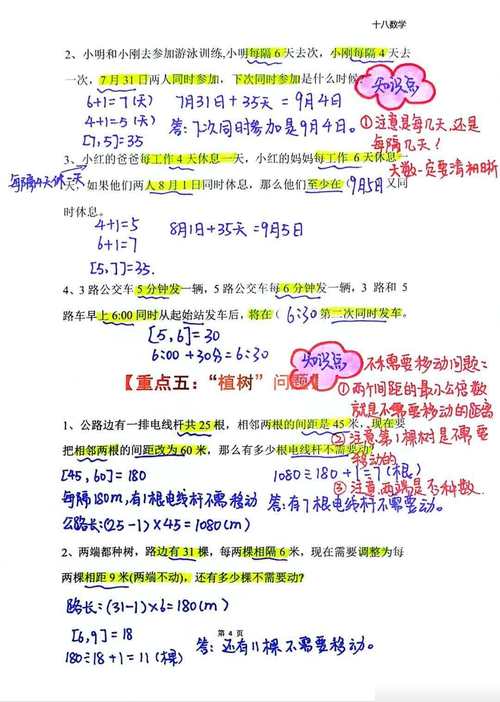 十八数学
2、小明和小刚去参加游泳训练,小明每隔 6 天去次, 小刚每隔 4 天去
一次, 7 月 31 日两人同时参加, 下次同时参加是什么时候
知识点
6+1=7(天) 7月31日+35天=9月4日
4+1=5(天) 答:下次同时参加是9月4日。
[7,5]=35
①注意是每几天,还是
每隔几天!
天数一定要清晰
3、小红的爸爸每工作 4 天休息一天, 小红的妈妈每工作 6 天休息一
每隔4天休一天
天, 如果他们两人 8 月 1 日同时休息, 那么他们至少在(9月5日又同
时休息。
4+1=5 8月1日+35天=9月5日
6+1=7
[5,7]=35.
4、3 路公交车 5 分钟发一辆, 5 路公交车每 6 分钟发一辆, 3 路和 5
路车早上 6:00 同时从起始站发车后, 将在( 6:30 第二次同时发车。
[5,6]=30
6:00+30分=6:30
知识点
不需要移动问题:
①两个间距的最小公倍数
就是不需要移动的距离
②注意第1棵树是不需要
移动的
③注意两端是否种数.
【重点五:“植树”问题】
1、公路边有一排电线杆共 25 根, 相邻两根的间距是 45 米, 现在要
把相邻两根的间距改为 60 米, 那么有多少根电线杆不需要动?
[45,60]=180 1080÷180+1=7(根)
每隔180m,有1根电线杆不需移动 答:有7根电线杆不需要动。
公路长:(25-1)×45=1080(m)
2、两端都种树, 路边有 31 棵, 每两棵相隔 6 米, 现在需要调整为每
两棵相距 9 米(两端不动), 还有多少棵不需要动?
路长:(31-1)×6=180(m)
[6,9]=18
第 4 页
180÷18+1=11(棵) 答:还有11棵不需要移动。